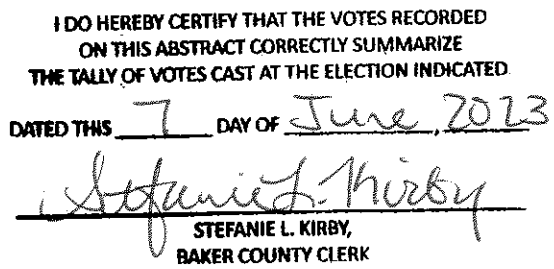 I DO HEREBY CERTIFY THAT THE VOTES RECORDED
ON THIS ABSTRACT CORRECTLY SUMMARIZE
THE TALLY OF VOTES CAST AT THE ELECTION INDICATED
DATED THIS 7 DAY OF June, 2023
Stefanie L. Kirby
STEFANIE L. KIRBY,
BAKER COUNTY CLERK